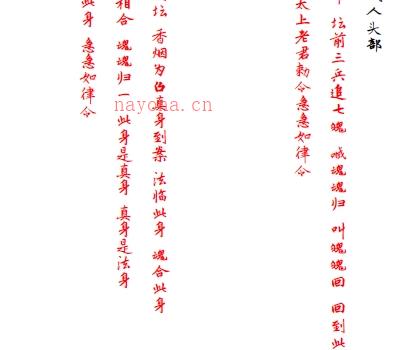 人头部
坛前三兵追七魄 喊魂魂归 叫魄魄回 回到此
太上老君勅令急急如律令
坛 香烟为 真身到案 法临此身 魂合此身
相合 魂魂归一 此身是真身 真身是法身
此身 急急如律令
nayona.cn